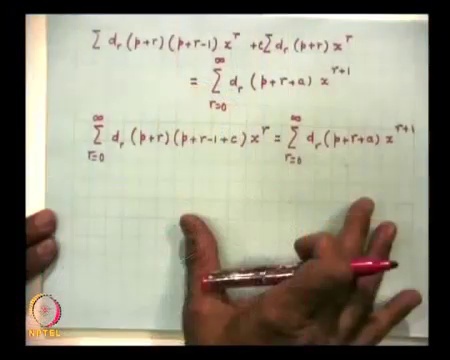 ∑ d_r (p+r) (p+r-1) x^r + c∑ d_r (p+r) x^r
= ∑_{r=0}^{∞} d_r (p+r+a) x^{r+1}
∑_{r=0}^{∞} d_r (p+r) (p+r-1+c) x^r = ∑_{r=0}^{∞} d_r (p+r+a) x^{r+1}
NPTEL